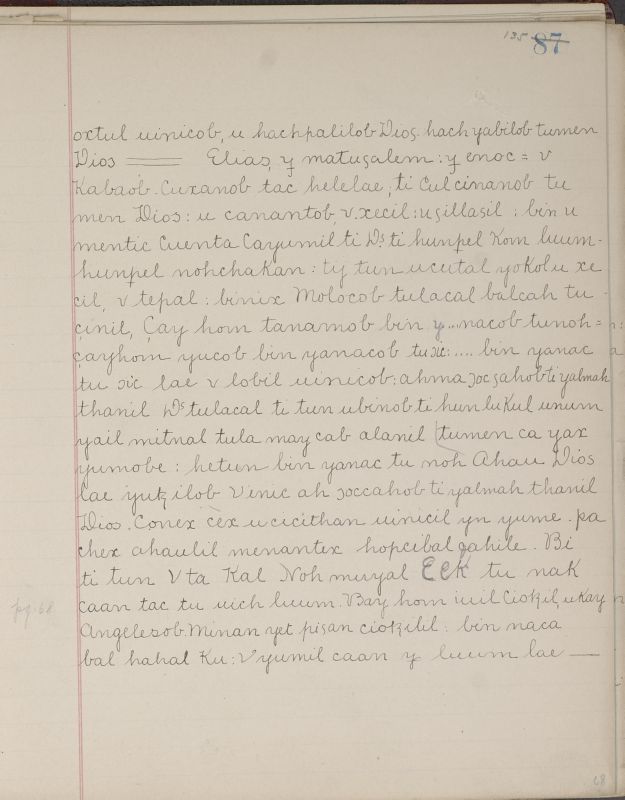 135 87
oxtul uinicob, u hachpalilob Dios. hach yabilob tumen
Dios ═══ Elias, y matusalem: y enoc = v
Kabaob. Cuxanob tac helelae, ti Culcinanob tu
men Dios: u canantob, v.xecil: u sillasil: bin u
mentic Cuenta Cayumil ti Ds. ti hunpel Kom luum.
hunpel nohchaKan: tij tun ucutal yoKolu xe
cil, v tepal: binix Molocob tulacal balcah tu
çinil, Çay hom tanamob bin y...nacob tunoh =
çayhom yucob bin yanacob tu xic: .... bin yanac
tu xic lae v lobil uinicob: ahma ɔocsahob ti yalmah
thanil Ds tulacal ti tun ubinob ti hun luKul unum
yail mitnal tula may cab alanil tumen ca yax
yumobe: hetun bin yanac tu noh Ahau Dios
lae yutzilob Vinic ah ɔoccahob ti yalmah thanil
Dios. Conex cex u cicithan uinicil yn yume. pa
chex ahaulil menantex hopcibal cahile. Bi
ti tun V ta Kal Noh muyal EEK tu naK
caan tac tu uich luum. Bay hom iuil Ciotzil, u Kay
Angelesob. Minan yet pisan ciotzilil: bin naca
bal hahal Ku: V yumil caan y luum lae —
pg. 68
68